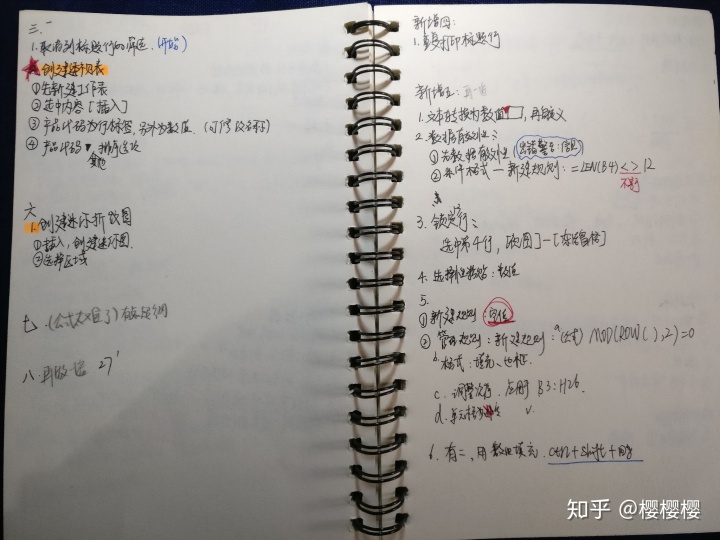 三、一
1.取消到标题行的筛选.(开始)
创建透视表
①先新建工作表
②选中内容[插入]
③产品代码为行标签,另外为数值.(可修改名称)
④产品代码▼,排序选次
六
1.创建迷你折线图
①插入,创建迷你图.
②选择区域
七.(公式太且了)
八.再做一篇 27'
新增四:
1.重复打印标题行
新增五:
1.文本转换为数值 ,再自定义
2.数据有效性:
①先数据有效性(出错警告:信息)
②条件格式—新建规则:=LEN(B4)<>12
不等于
3.锁定行:
选中第4行,[视图]—[冻结窗格]
4.选择性粘贴:数值
5.
①新建规则:空值
②管理规则:新建规则:a(公式) MOD(ROW( ),2)=0
b.格式:填充、边框.
c.调整次序.应用于B3:H26.
d.单元格
6.有二,用数据填充.ctrl+shift+
知乎 @樱樱樱